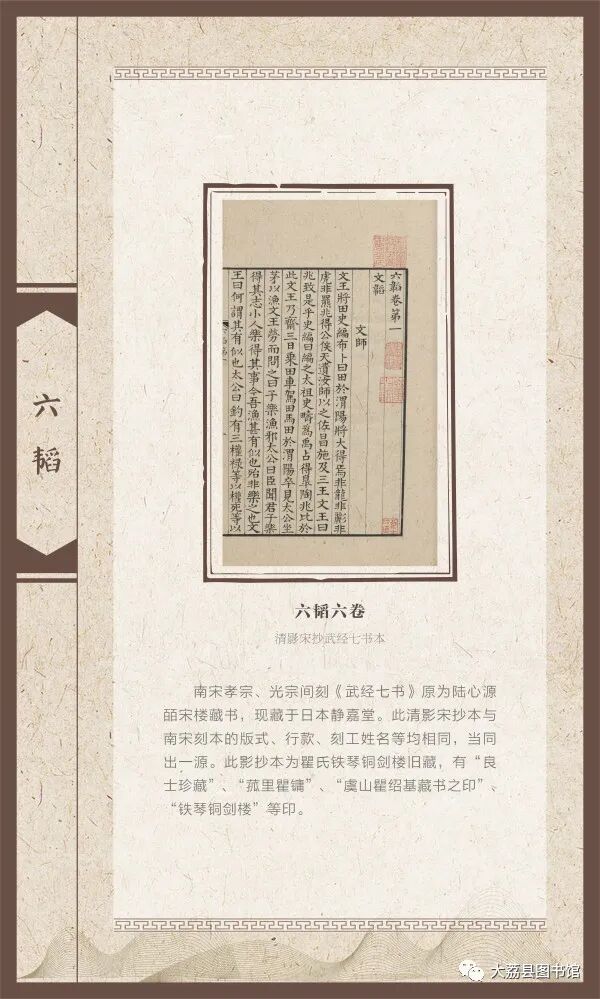 六韬
六韜卷第一
文韜
文師
文王將田史編布卜曰田於渭陽將大得焉非龍非彲非
虎非羆兆得公侯天遺汝師以之佐昌施及三王文王曰
兆致是乎史編曰編之太祖史疇爲禹占得皐陶兆比於
此文王乃齋三日乘田車駕田馬田於渭陽卒見太公坐
茅以漁文王勞而問之曰子樂漁邪太公曰臣聞君子樂
得其志小人樂得其事今吾漁甚有似也殆非樂之也文
王曰何謂其有似也太公曰釣有三權祿等以權死等以
六韬六卷
清影宋抄武经七书本
南宋孝宗、光宗间刻《武经七书》原为陆心源
皕宋楼藏书，现藏于日本静嘉堂。此清影宋抄本与
南宋刻本的版式、行款、刻工姓名等均相同，当同
出一源。此影抄本为瞿氏铁琴铜剑楼旧藏，有“良
士珍藏”、“菰里瞿镛”、“虞山瞿绍基藏书之印”、
“铁琴铜剑楼”等印。
大荔县图书馆